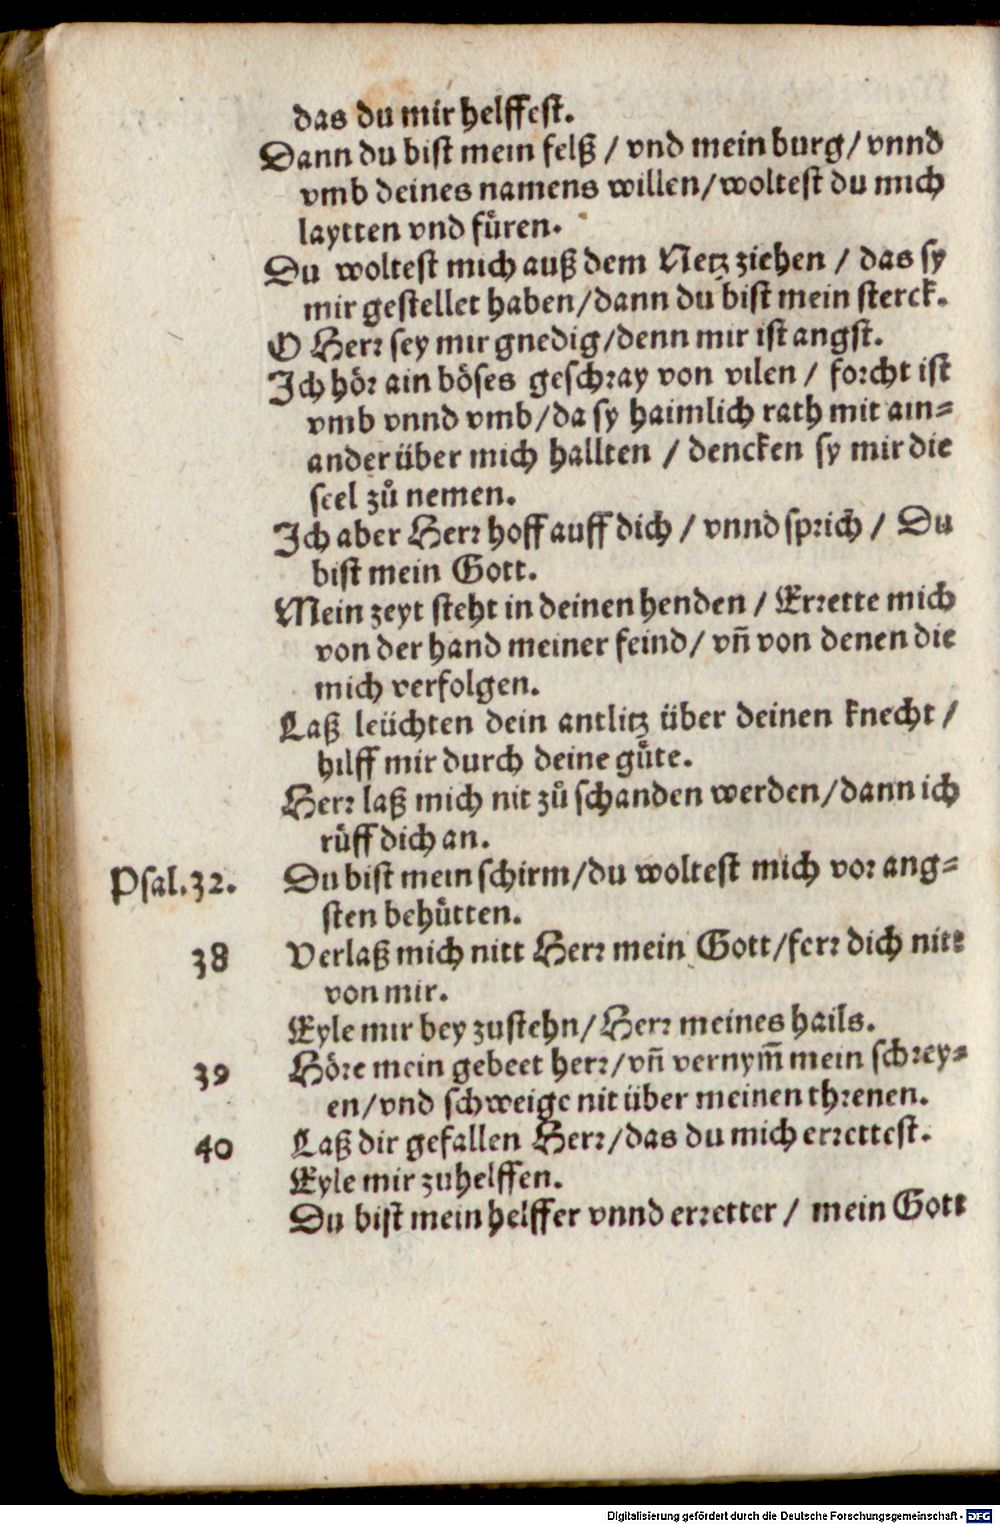 das du mir helffest.
Dann du bist mein felß / vnd mein burg / vnnd
vmb deines namens willen / woltest du mich
laytten vnd fuͤren.
Du woltest mich auß dem Netz ziehen / das sy
mir gestellet haben / dann du bist mein sterck.
O Herr sey mir gnedig / denn mir ist angst.
Ich hoͤr ain boͤses geschray von vilen / forcht ist
vmb vnnd vmb / da sy haimlich rath mit ain⸗
ander über mich hallten / dencken sy mir die
seel zů nemen.
Ich aber Herr hoff auff dich / vnnd sprich / Du
bist mein Gott.
Mein zeyt steht in deinen henden / Errette mich
von der hand meiner feind / vñ von denen die
mich verfolgen.
Laß leüchten dein antlitz über deinen knecht /
hilff mir durch deine guͤte.
Herr laß mich nit zů schanden werden / dann ich
ruͤff dich an.
Psal. 32. Du bist mein schirm / du woltest mich vor ang⸗
sten behuͤtten.
38 Verlaß mich nitt Herr mein Gott / ferr dich nitt
von mir.
Eyle mir bey zustehn / Herr meines hails.
39 Hoͤre mein gebeet herr / vñ vernym̃ mein schrey⸗
en / vnd schweige nit über meinen threnen.
40 Laß dir gefallen Herr / das du mich errettest.
Eyle mir zuhelffen.
Du bist mein helffer vnnd erretter / mein Gott
Digitalisierung gefördert durch die Deutsche Forschungsgemeinschaft - DFG